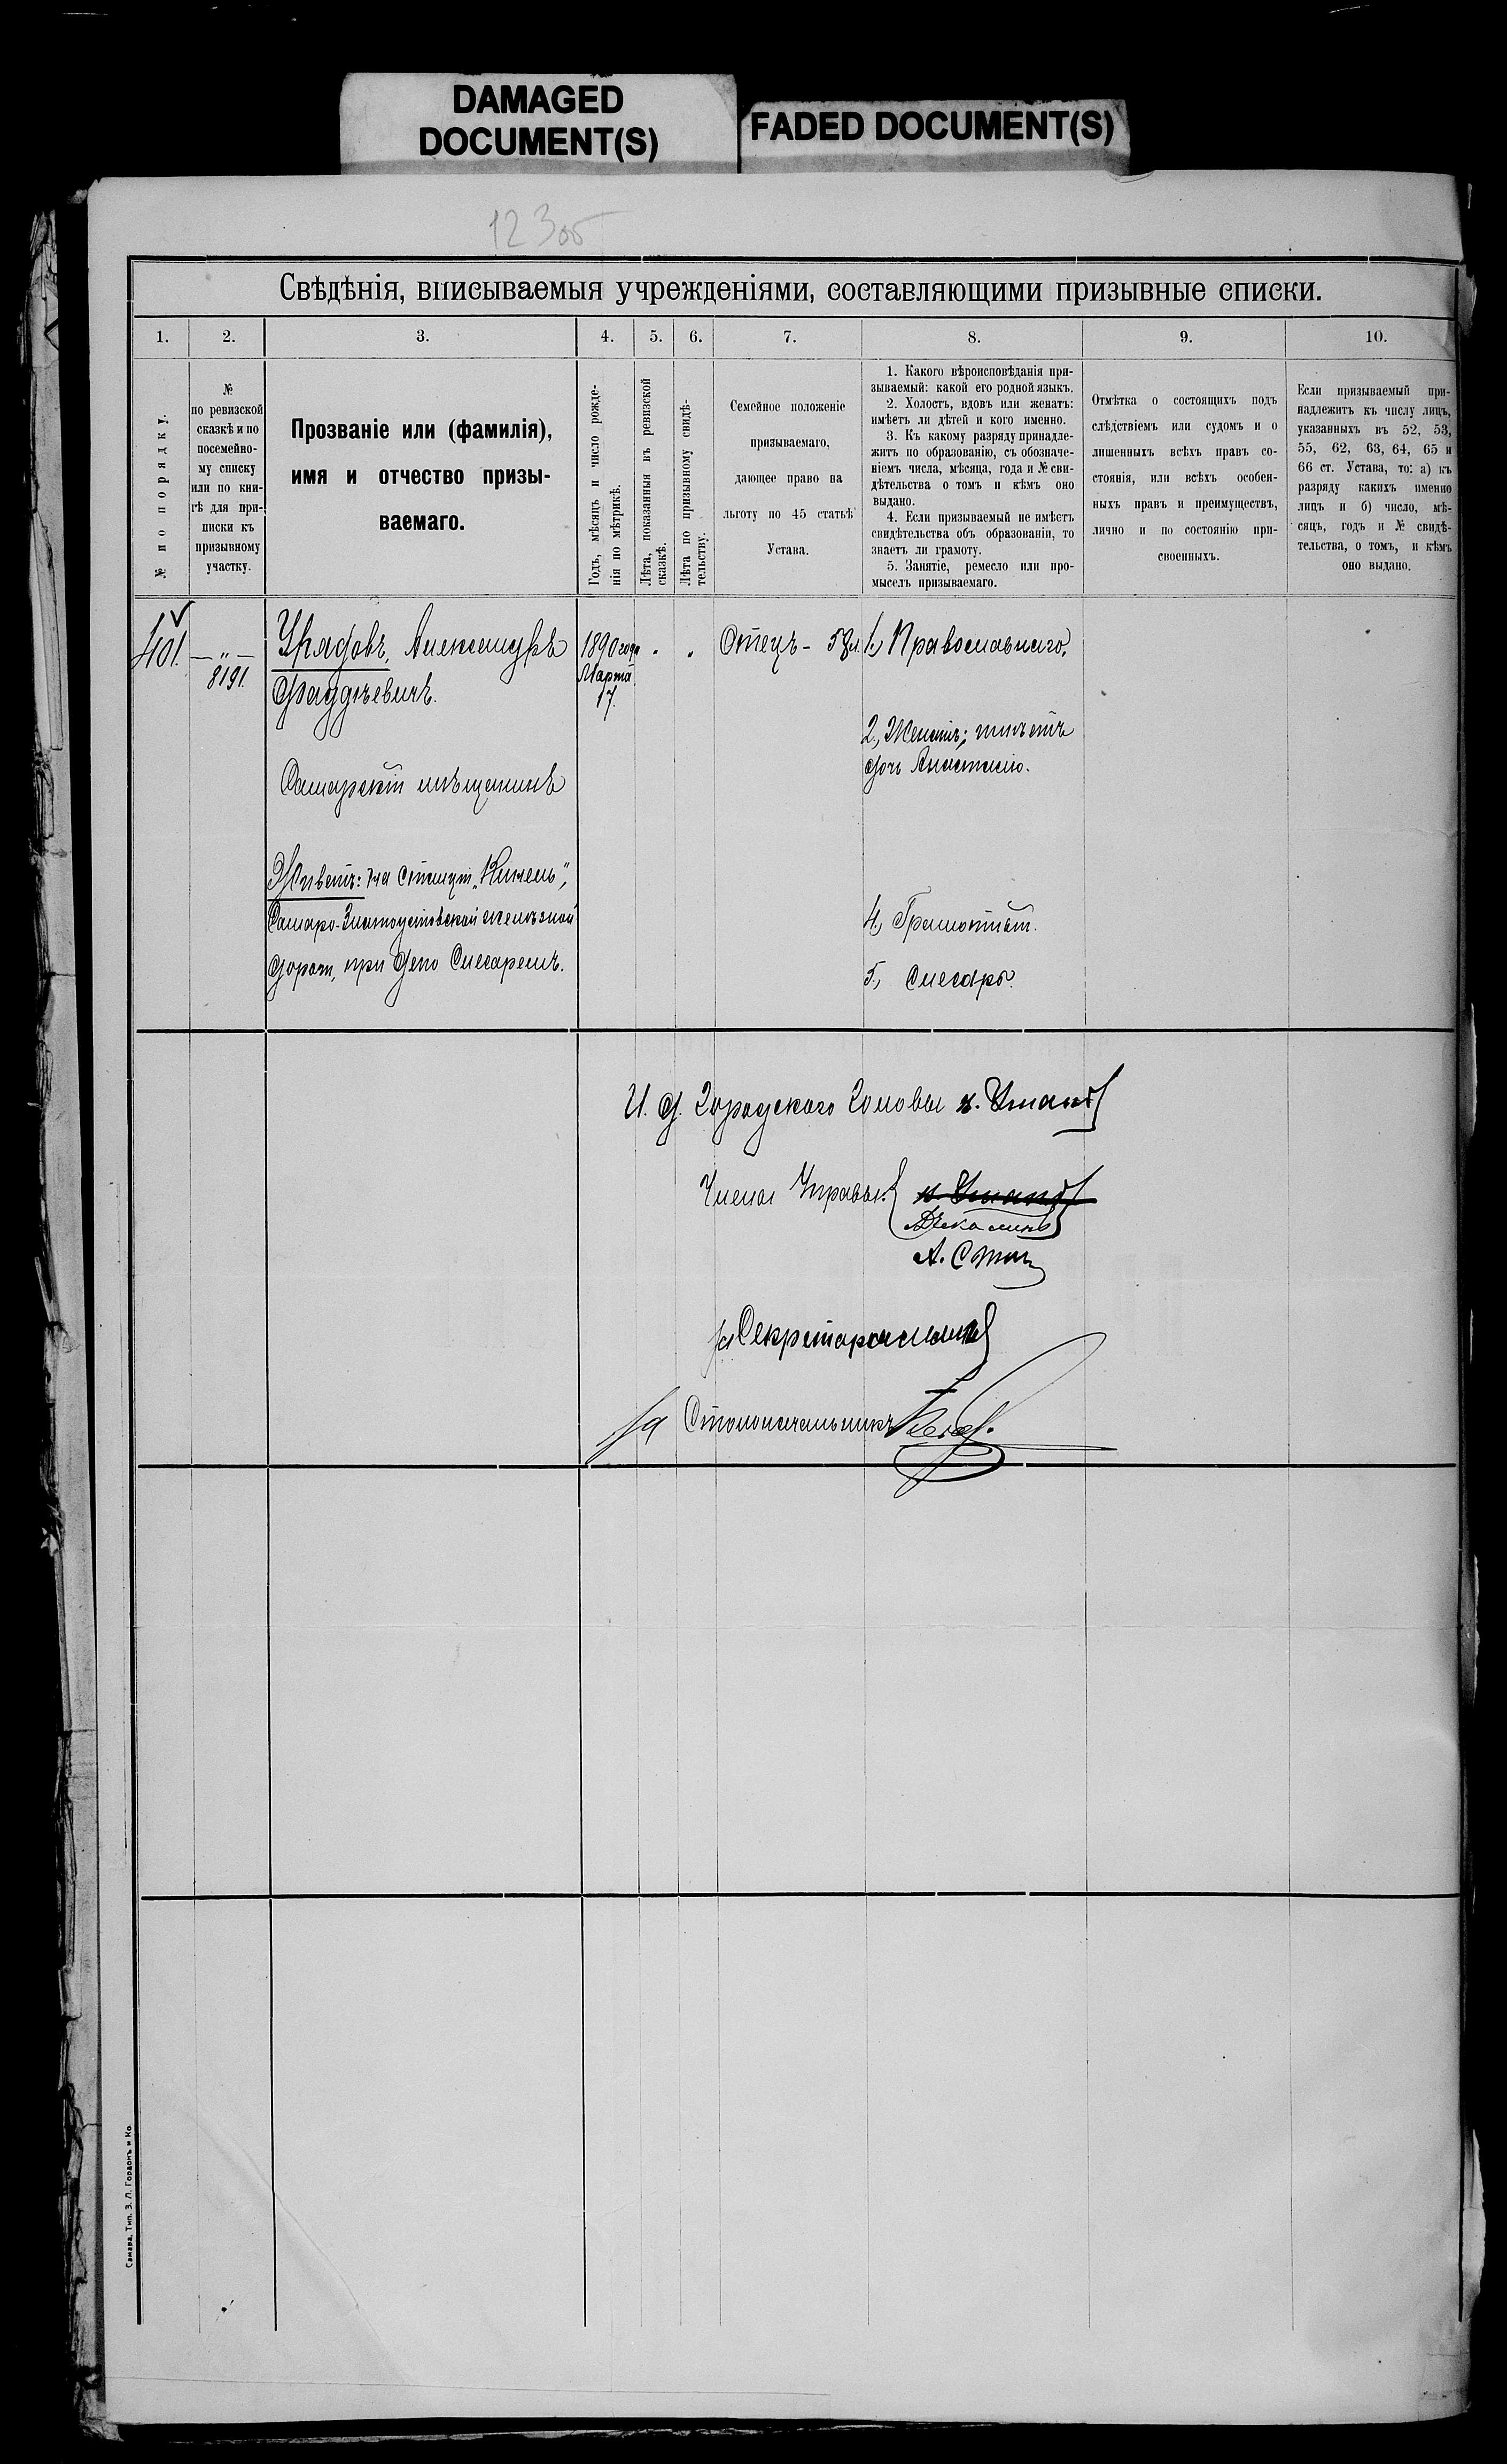 DAMAGED
DOCUMENT(S)
FADED DOCUMENT(S)
12305
Свѣдѣнія, вписываемыя учрежденіями, составляющими призывные списки.
1.
2.
3.
4.
5.
6.
7.
8.
9.
10.
№ по порядку.
№
по ревизской
сказкѣ и по
посемейно-
му списку
или по кни-
гѣ для при-
писки къ
призывному
участку.
Прозваніе или (фамилія),
имя и отчество призы-
ваемаго.
Годъ, мѣсяцъ и число рожде-
нія по мѣтрикѣ.
Лѣта, показанныя въ ревизской
сказкѣ.
Лѣта по призывному свидѣ-
тельству.
Семейное положеніе
призываемаго,
дающее право на
льготу по 45 статьѣ
Устава.
1. Какого вѣроисповѣданія при-
зываемый: какой его родной языкъ.
2. Холостъ, вдовъ или женатъ:
имѣетъ ли дѣтей и кого именно.
3. Къ какому разряду принадле-
житъ по образованію, съ обозначе-
ніемъ числа, мѣсяца, года и № сви-
дѣтельства о томъ и кѣмъ оно
выдано.
4. Если призываемый не имѣетъ
свидѣтельства объ образованіи, то
знаетъ ли грамоту.
5. Занятіе, ремесло или про-
мыселъ призываемаго.
Отмѣтка о состоящихъ подъ
слѣдствіемъ или судомъ и о
лишенныхъ всѣхъ правъ со-
стоянія, или всѣхъ особен-
ныхъ правъ и преимуществъ,
лично и по состоянію при-
своенныхъ.
Если призываемый при-
надлежитъ къ числу лицъ,
указанныхъ въ 52, 53,
55, 62, 63, 64, 65 и
66 ст. Устава, то: а) къ
разряду какихъ именно
лицъ и б) число, мѣ-
сяцъ, годъ и № свидѣ-
тельства, о томъ, и кѣмъ
оно выдано.
401.
— „ —
8191.
Урядовъ, Александръ
Фаддѣевичъ.
Самарскій мѣщанинъ
Живетъ: на станціи „Кинель",
Самаро-Златоустовской желѣзной
дороги, при депо Слесаремъ.
1890 года
Марта
17.
"
"
Отецъ - 58 л.
1., Православнаго.
2., Женатъ; имѣетъ
дочь Анастасію.
4., Грамотный.
5., Слесарь.
И. д. Городского Головы
Члены Управы:
За Секретаря
За Столоначальникъ
Самара, Тип. З. Л. Гордонъ и Ко.